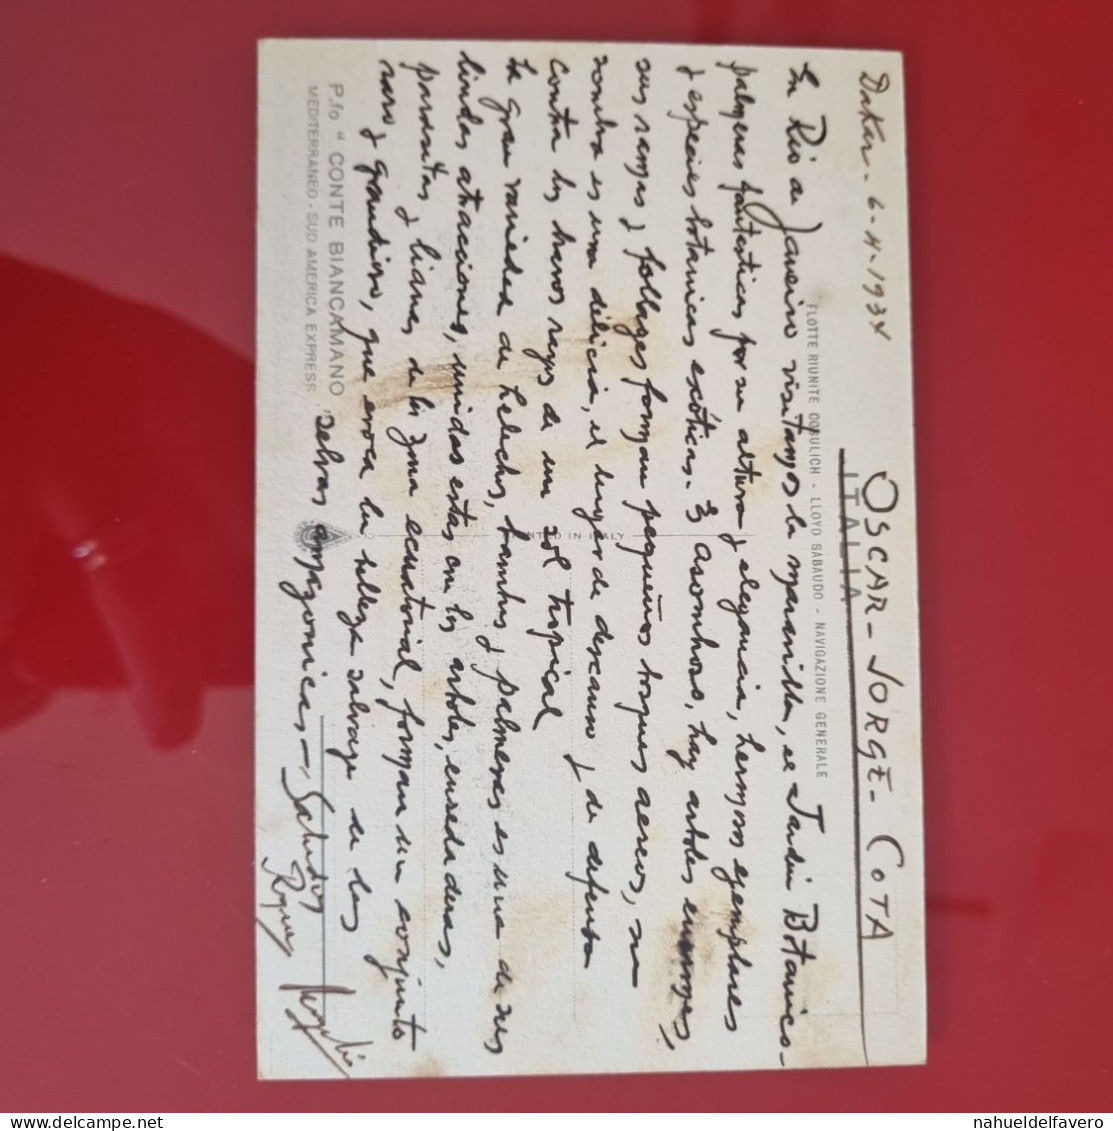 Dakar - 6-4-1934
OSCAR - JORGE - COTA
ITALIA
FLOTTE RIUNITE COSULICH - LLOYD SABAUDO - NAVIGAZIONE GENERALE
En Rio de Janeiro visitamos la maravilla, el Jardin Botanico -
palmeras fantasticas por su altura y elegancia, hermosos ejemplares
y especies botanicas exóticas - asombroso, hay arboles enormes,
sus ramas y follages forman pequeños bosques aereos, su
sombra es una delicia, el lugar de descanso y de defensa
contra los bravos rayos de un sol tropical
La gran variedad de helechos, bambus y palmeras es una de sus
lindas atracciones, unidas estas con los arboles, enredaderas,
parasitas y lianas de la zona ecuatorial, forman un conjunto
raro y grandioso, que evoca la belleza salvage de las
selvas amazonicas - Saludos
PRINTED IN ITALY
P.fo " CONTE BIANCAMANO "
MEDITERRANEO - SUD AMERICA EXPRESS
delcampe.net
nahueldelfavero